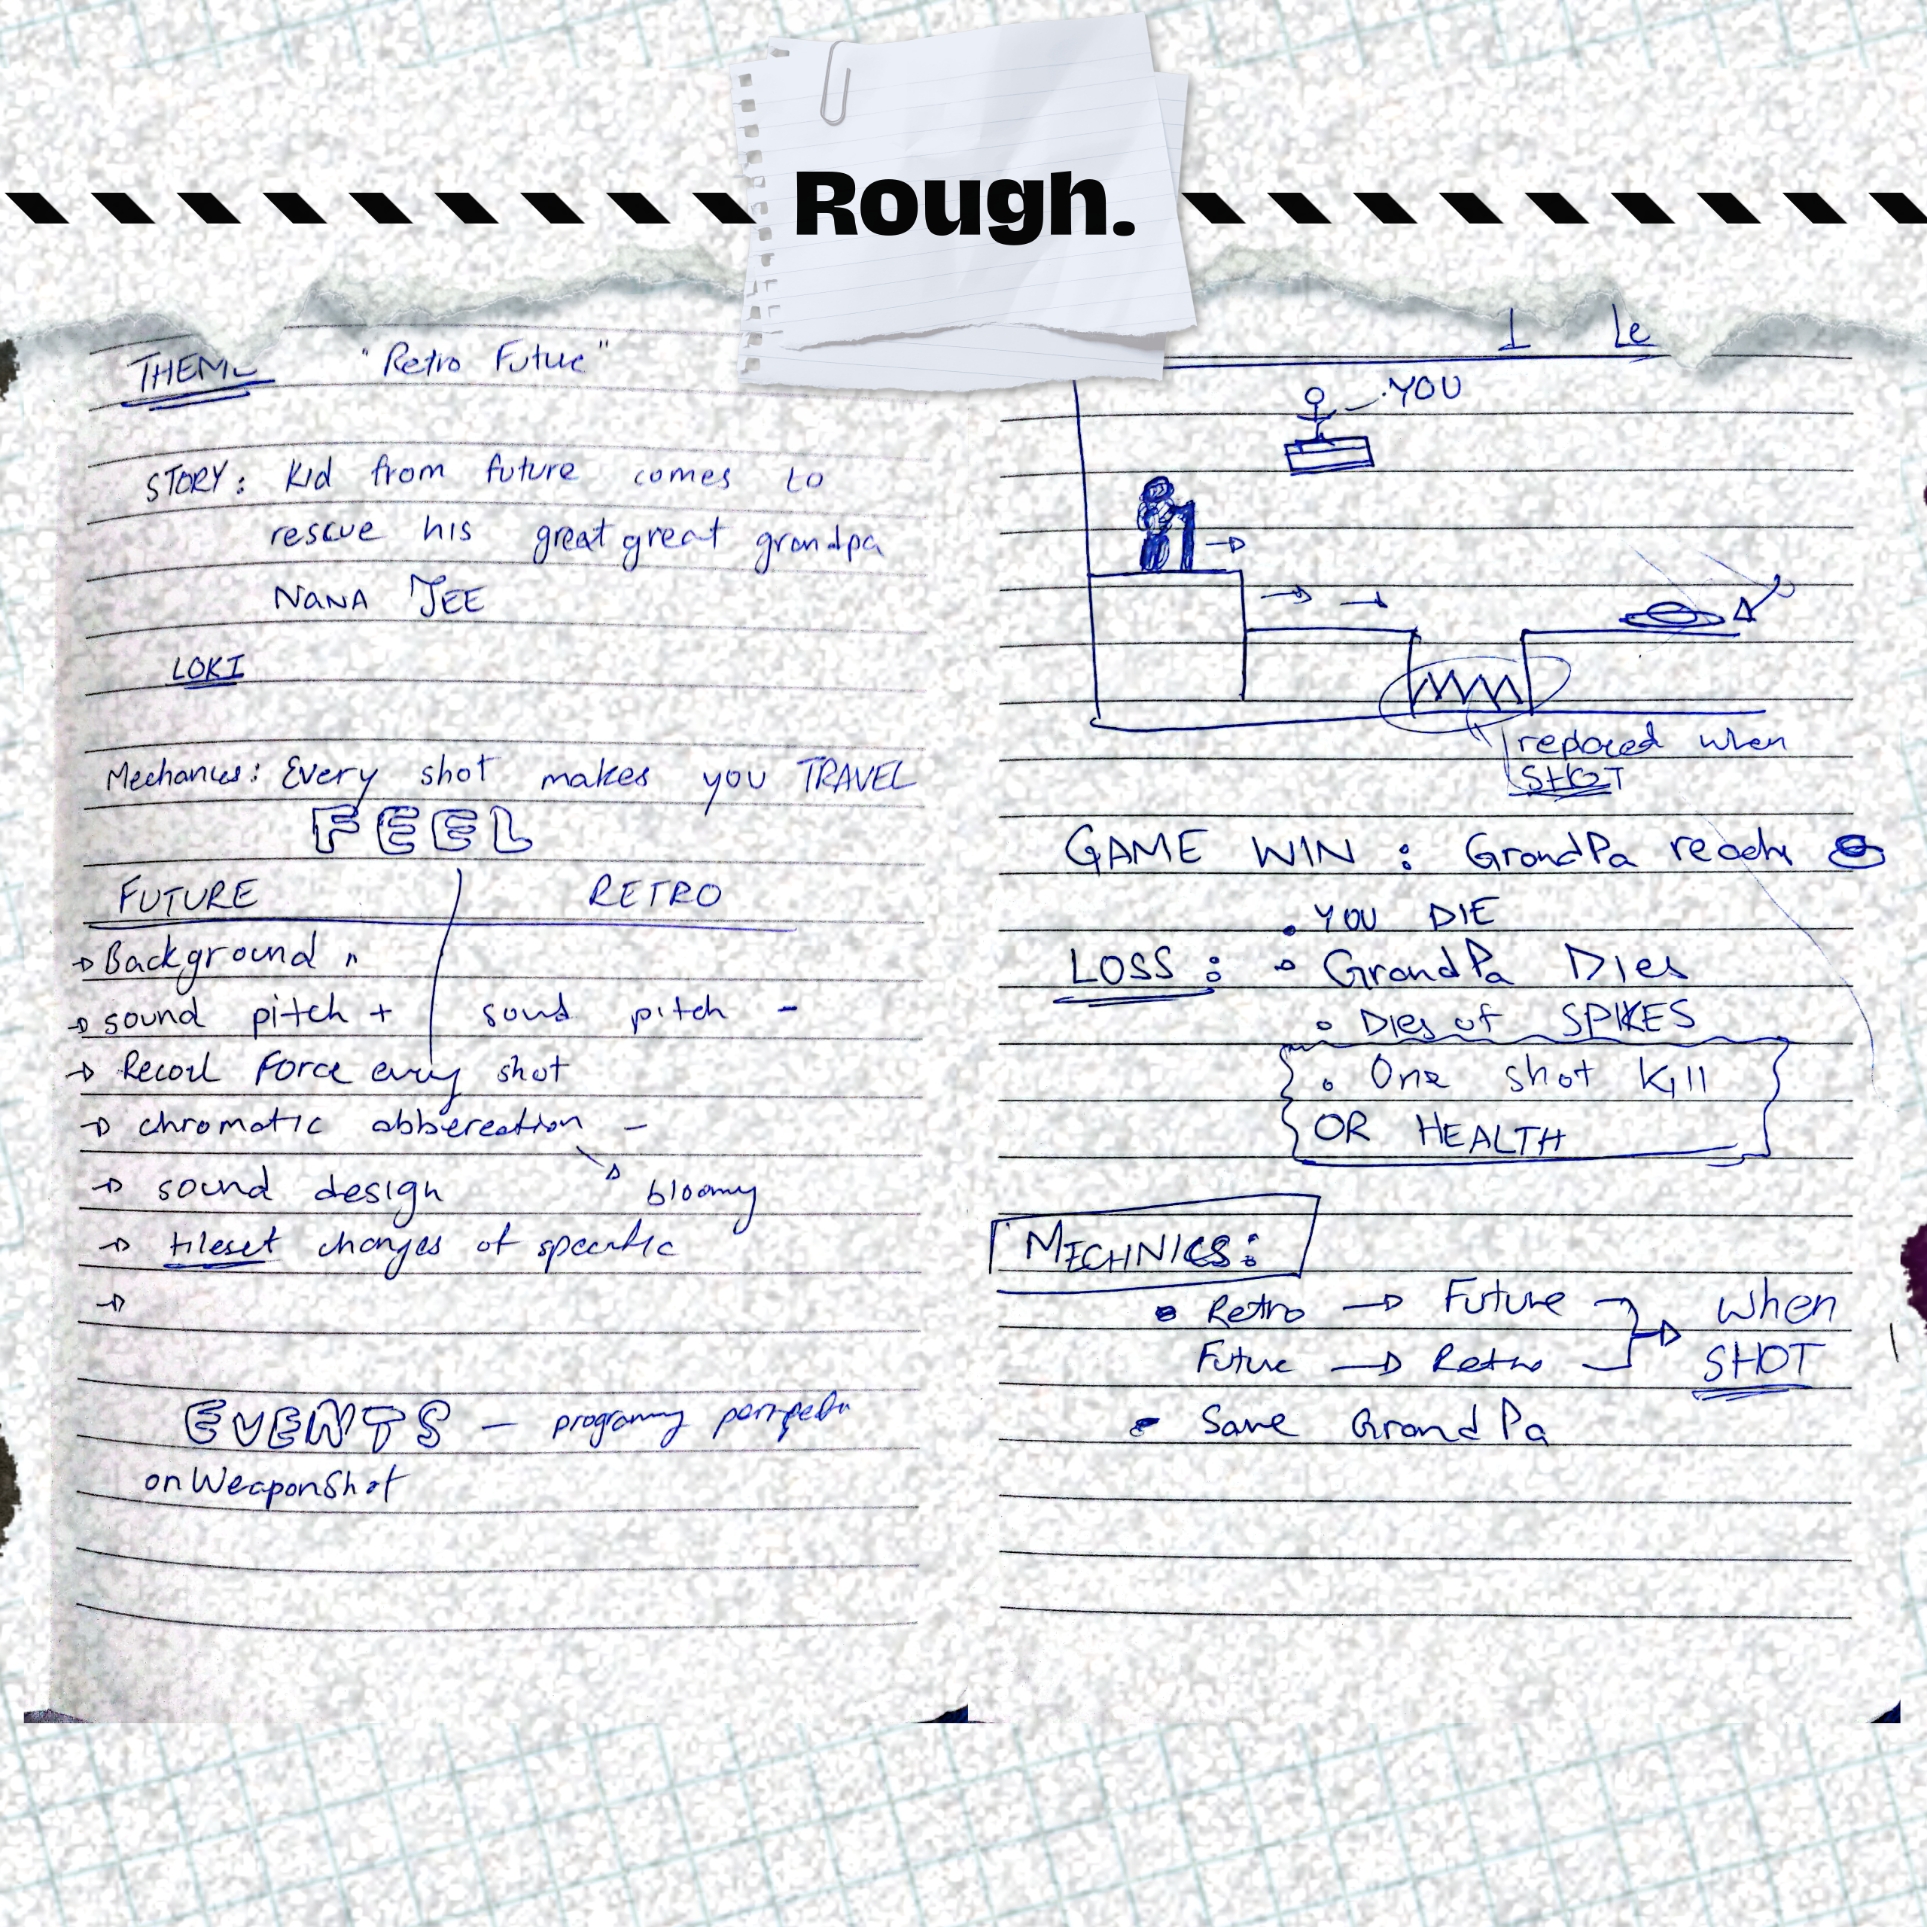 Rough.
THEME "Retro Future"
STORY: Kid from future comes to
rescue his great great grandpa
NANA JEE
LOKI
Mechanics: Every shot makes you TRAVEL
FEEL
FUTURE RETRO
→ Background "
→ sound pitch + sound pitch -
→ Recoil Force every shot
→ chromatic abbereation -
→ sound design bloomy
→ tileset changes of specific
→
EVENTS -
onWeaponShot
1 Le
YOU
replaced when
SHOT
GAME WIN : GrandPa reachs
• YOU DIE
LOSS : • GrandPa Dies
• Dies of SPIKES
• One shot Kill
OR HEALTH
MECHNICS:
• Retro → Future
Future → Retro
when
SHOT
• Save GrandPa